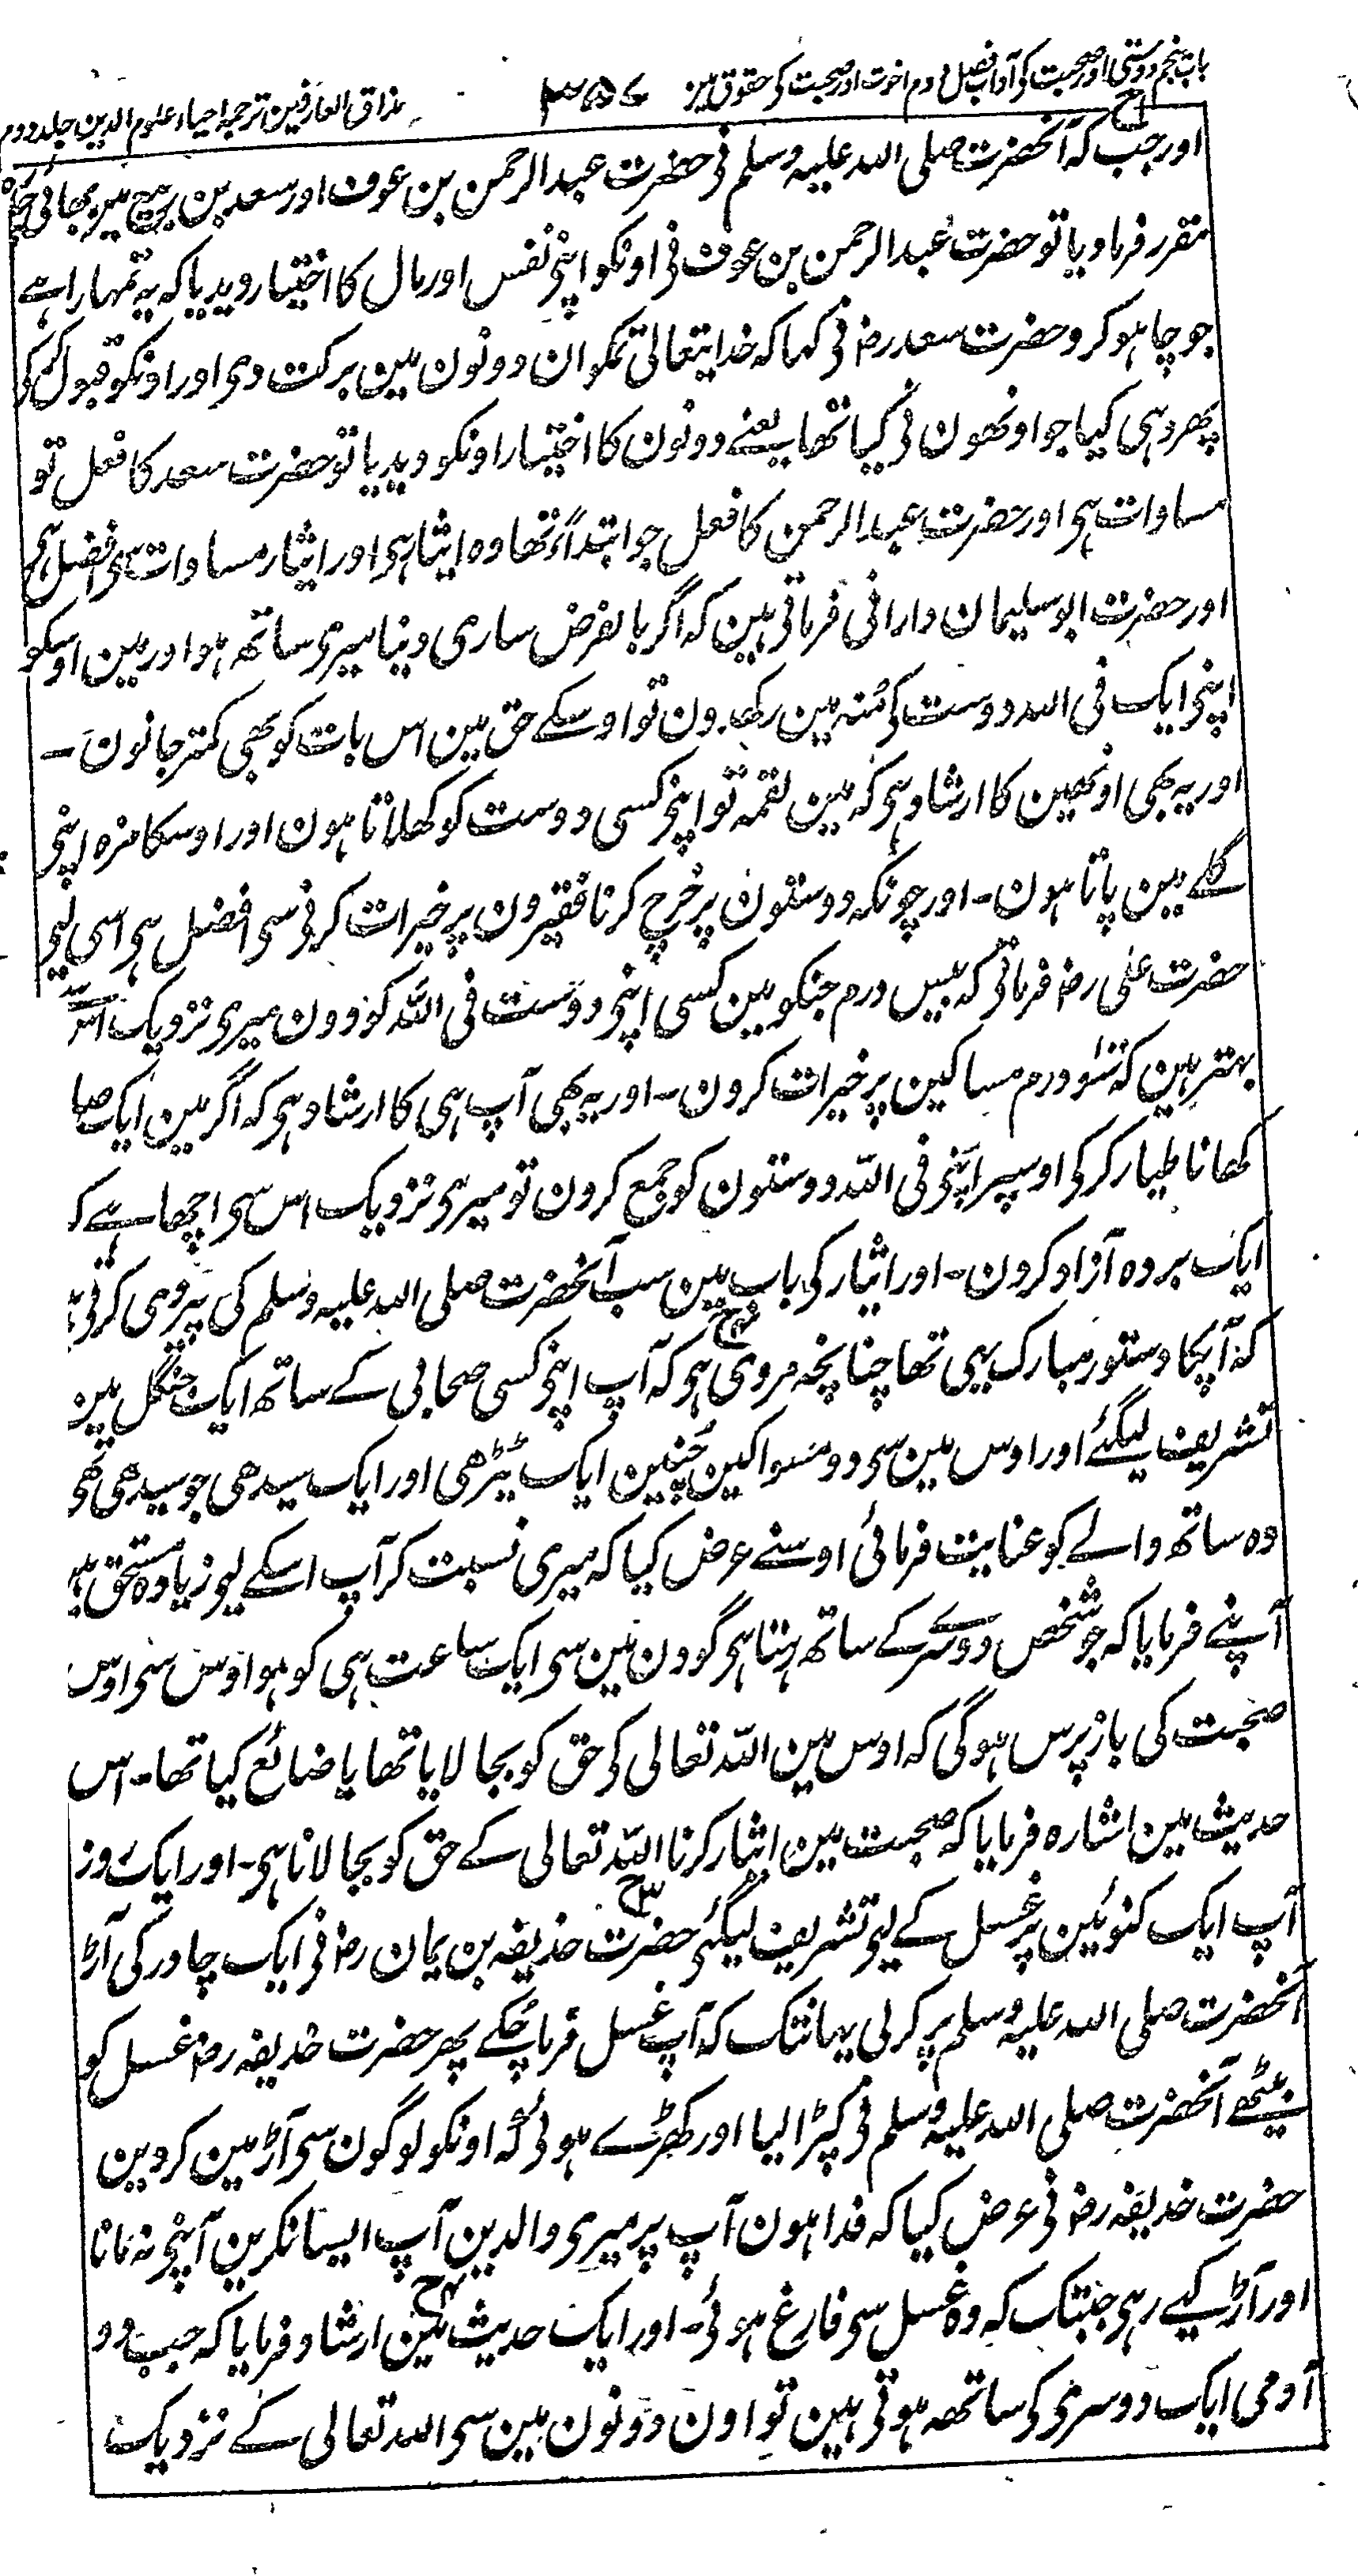 باب پنجم دوستی اور صحبت کی آداب فصل دوم اخوت اور صحبت کی حقوق مین ۳۵۷ مذاق العارفین ترجمہ احیاء علوم الدین جلد دوم
اور جب کہ آنحضرت صلی اللہ علیہ وسلم نی حضرت عبد الرحمن بن عوف اور سعد بن ربیع مین بھائی
مقرر فرما دیا تو حضرت عبد الرحمن بن عوف نی اونکو اپنی نفس اور مال کا اختیار دیدیا کہ یہ تمہارا ہے
جو چاہو کرو حضرت سعد رضہ نی کہا کہ خدایتعالی تمکو ان دونون مین برکت دی اور اونکو قبول کرکی
پھر وہی کیا جو اونھون نی کیا تھا یعنے دونون کا اختیار اونکو دیدیا تو حضرت سعد کا فعل تو
مساوات ہی اور حضرت عبد الرحمن کا فعل جو ابتداءً تھا وہ ایثار ہی اور ایثار مساوات سی افضل ہی
اور حضرت ابو سلیمان دارانی فرماتی ہین کہ اگر بالفرض ساری دنیا میری ساتھ ہو اور مین اوسکو
اپنی ایک فی اللہ دوست کی منہ مین رکھدون تو اوسکے حق مین اس بات کو بھی کمتر جانون ۔
اور یہ بھی اونھین کا ارشاد ہی کہ مین لقمہ تو اپنی کسی دوست کو کھلاتا ہون اور اوسکا مزہ اپنی
گلے مین پاتا ہون ۔ اور چونکہ دوستون پر خرچ کرنا فقیرون پر خیرات کرنی سی افضل ہی اسی لیی
حضرت علی رضہ فرماتی کہ بیس درم جنکو مین کسی اپنی دوست فی اللہ کو دون میری نزدیک
بہتر ہین کہ سَو درم مساکین پر خیرات کرون ۔ اور یہ بھی آپ ہی کا ارشاد ہی کہ اگر مین ایک صا
کھانا طیار کرکی اوسپر اپنی فی اللہ دوستون کو جمع کرون تو میری نزدیک اس سی اچھا ہے کہ
ایک بردہ آزاد کرون ۔ اور ایثار کی باب مین سب آنحضرت صلی اللہ علیہ وسلم کی پیروی کرتی
کہ آپکا دستور مبارک یہی تھا چنانچہ مروی ہی کہ آپ اپنی کسی صحابی کے ساتھ ایک جنگل مین
تشریف لیگئے اور اوس مین سی دو مسواکین چنین ایک ٹیڑھی اور ایک سیدھی جو سیدھی تھی
وہ ساتھ والے کو عنایت فرمائی اوسنے عرض کیا کہ میری نسبت کر آپ اسکے لیی زیادہ مستحق
آپنے فرمایا کہ جو شخص دوسرے کے ساتھ رہتا ہی گو دن مین سی ایک ساعت ہی کو ہو اوس سی اوس
صحبت کی باز پرس ہوگی کہ اوس مین اللہ تعالی کی حق کو بجا لایا تھا یا ضائع کیا تھا ۔ اس
حدیث مین اشارہ فرمایا کہ صحبت مین ایثار کرنا اللہ تعالی کے حق کو بجا لانا ہی ۔ اور ایک روز
آپ ایک کنوئین پر غسل کے لیی تشریف لیگئی حضرت حذیفہ بن یمان رضہ نی ایک چادر کی آڑ
آنحضرت صلی اللہ علیہ وسلم پر کرلی یہانتک کہ آپ غسل فرما چکے پھر حضرت حذیفہ رضہ غسل کو
بیٹھے آنحضرت صلی اللہ علیہ وسلم نی کپڑا لیا اور کھڑے ہوئی کہ اونکو لوگون سی آڑ مین کردین
حضرت حذیفہ رضہ نی عرض کیا کہ فدا ہون آپ پر میری والدین آپ ایسا نکرین آپنی نہ مانا
اور آڑ کیے رہی جبتک کہ وہ غسل سی فارغ ہوئی ۔ اور ایک حدیث مین ارشاد فرمایا کہ جب دو
آدمی ایک دوسری کی ساتھہ ہوتی ہین تو اون دونون مین سی اللہ تعالی کے نزدیک